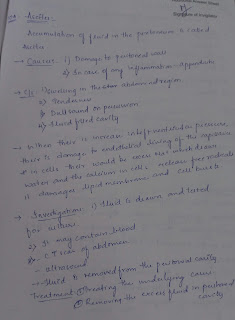 Ascites:
Accumulation of fluid in the peritoneum is called
Ascites
→ Causes: 1) Damage to peritoneal wall
2) In case of any inflammation
→ C/f: 1) Swelling in the abdominal region
2) Tenderness
3) Dull sound on percussion
4) fluid filled cavity
→ When there is increase in
there is damage to endothelial lining of the capillaries
in cells there would be
water and the calcium in cells, increase free radicals
is damages lipid membrane and cell bursts
→ Investigations: 1) fluid is drawn and tested
for
2) It may contain blood
3) CT scan of abdomen
- ultrasound
- fluid is removed from the peritoneal cavity
Treatment: ① Treating the underlying cause
② Removing the excess fluid in peritoneal
cavity